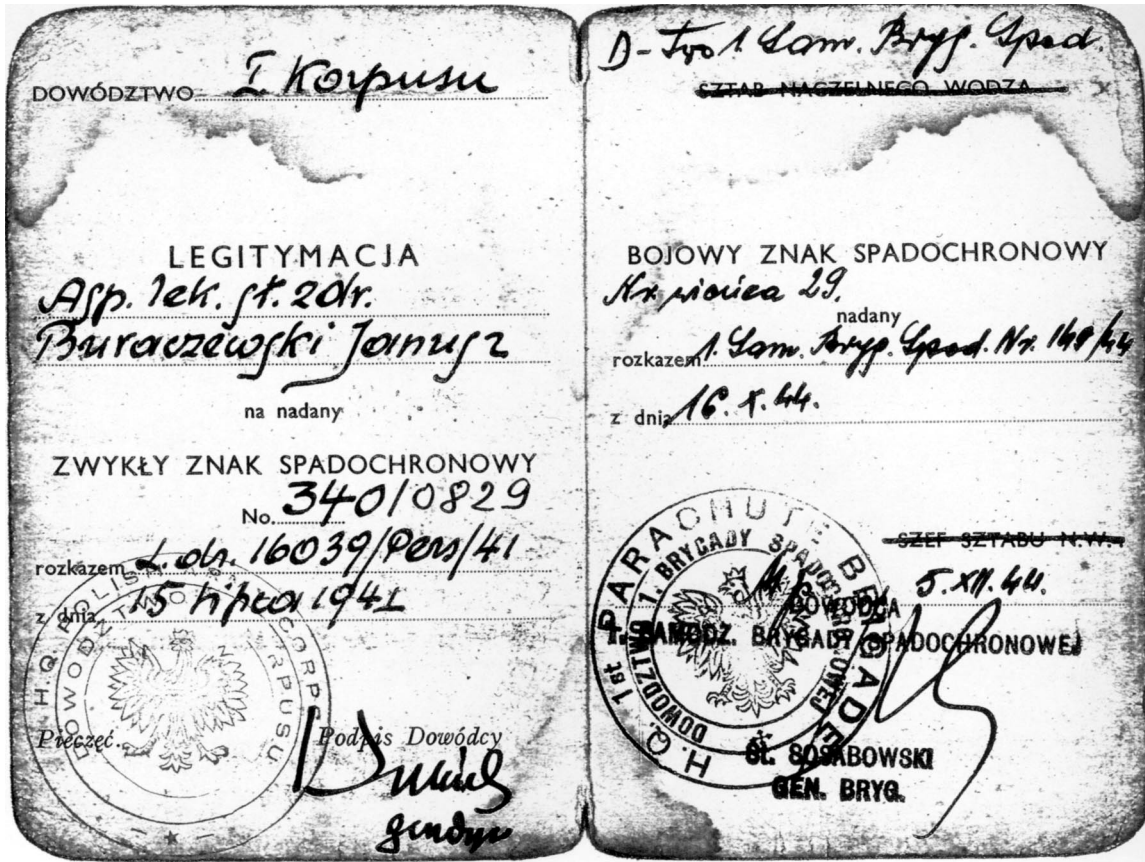 DOWÓDZTWO I Korpusu
LEGITYMACJA
Asp. lek. st. zdr.
Buraczewski Janusz
na nadany
ZWYKŁY ZNAK SPADOCHRONOWY
No. 340/0829
rozkazem L. dz. 16039/Pers/41
z dnia 15 lipca 1941
Pieczęć
Podpis Dowódcy
H.Q. POLISH CORPS
DOWÓDZTWO I KORPUSU
D-two 1. Sam. Bryg. Spad.
SZTAB NACZELNEGO WODZA
BOJOWY ZNAK SPADOCHRONOWY
Nr. wieńca 29.
nadany
rozkazem 1. Sam. Bryg. Spad. Nr. 149/44
z dnia 16. X. 44.
SZEF SZTABU N.W.
5. XII. 44.
DOWÓDCA
1. SAMODZ. BRYGADY SPADOCHRONOWEJ
H.Q. 1st PARACHUTE BRIGADE
DOWÓDZTWO 1 BRYGADY SPADOCHRONOWEJ
ST. SOSABOWSKI
GEN. BRYG.